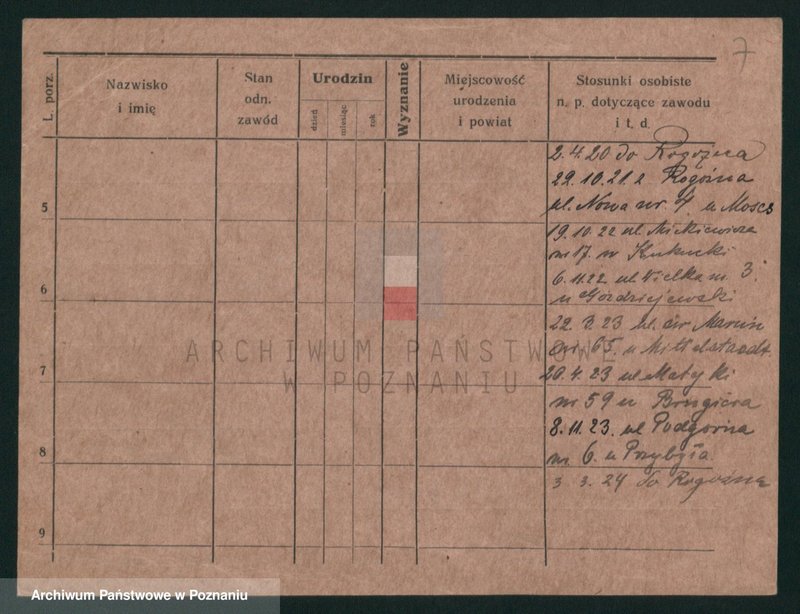 7
L. porz.
Nazwisko
i imię
Stan
odn.
zawód
Urodzin
dzień
miesiąc
rok
Wyznanie
Miejscowość
urodzenia
i powiat
Stosunki osobiste
n. p. dotyczące zawodu
i t. d.
2.4.20 do Rogoźna
22.10.21 z Rogoźna
ul. Nowa nr. 4 u
5
19.10.22 ul Mickiewicza
nr 17. u Kukucki
6.11.22 ul Wielka nr. 3.
6
u Góździejewski
22 23 ul. św Marcin
nr. 65. u
ARCHIWUM PAŃSTWOWE
W POZNANIU
7
20.4.23 ul Matejki
nr 59 u
8.11.23. ul Podgórna
8
nr. 6. u Przybyła
3 3. 24 do Rogoźna
9
Archiwum Państwowe w Poznaniu